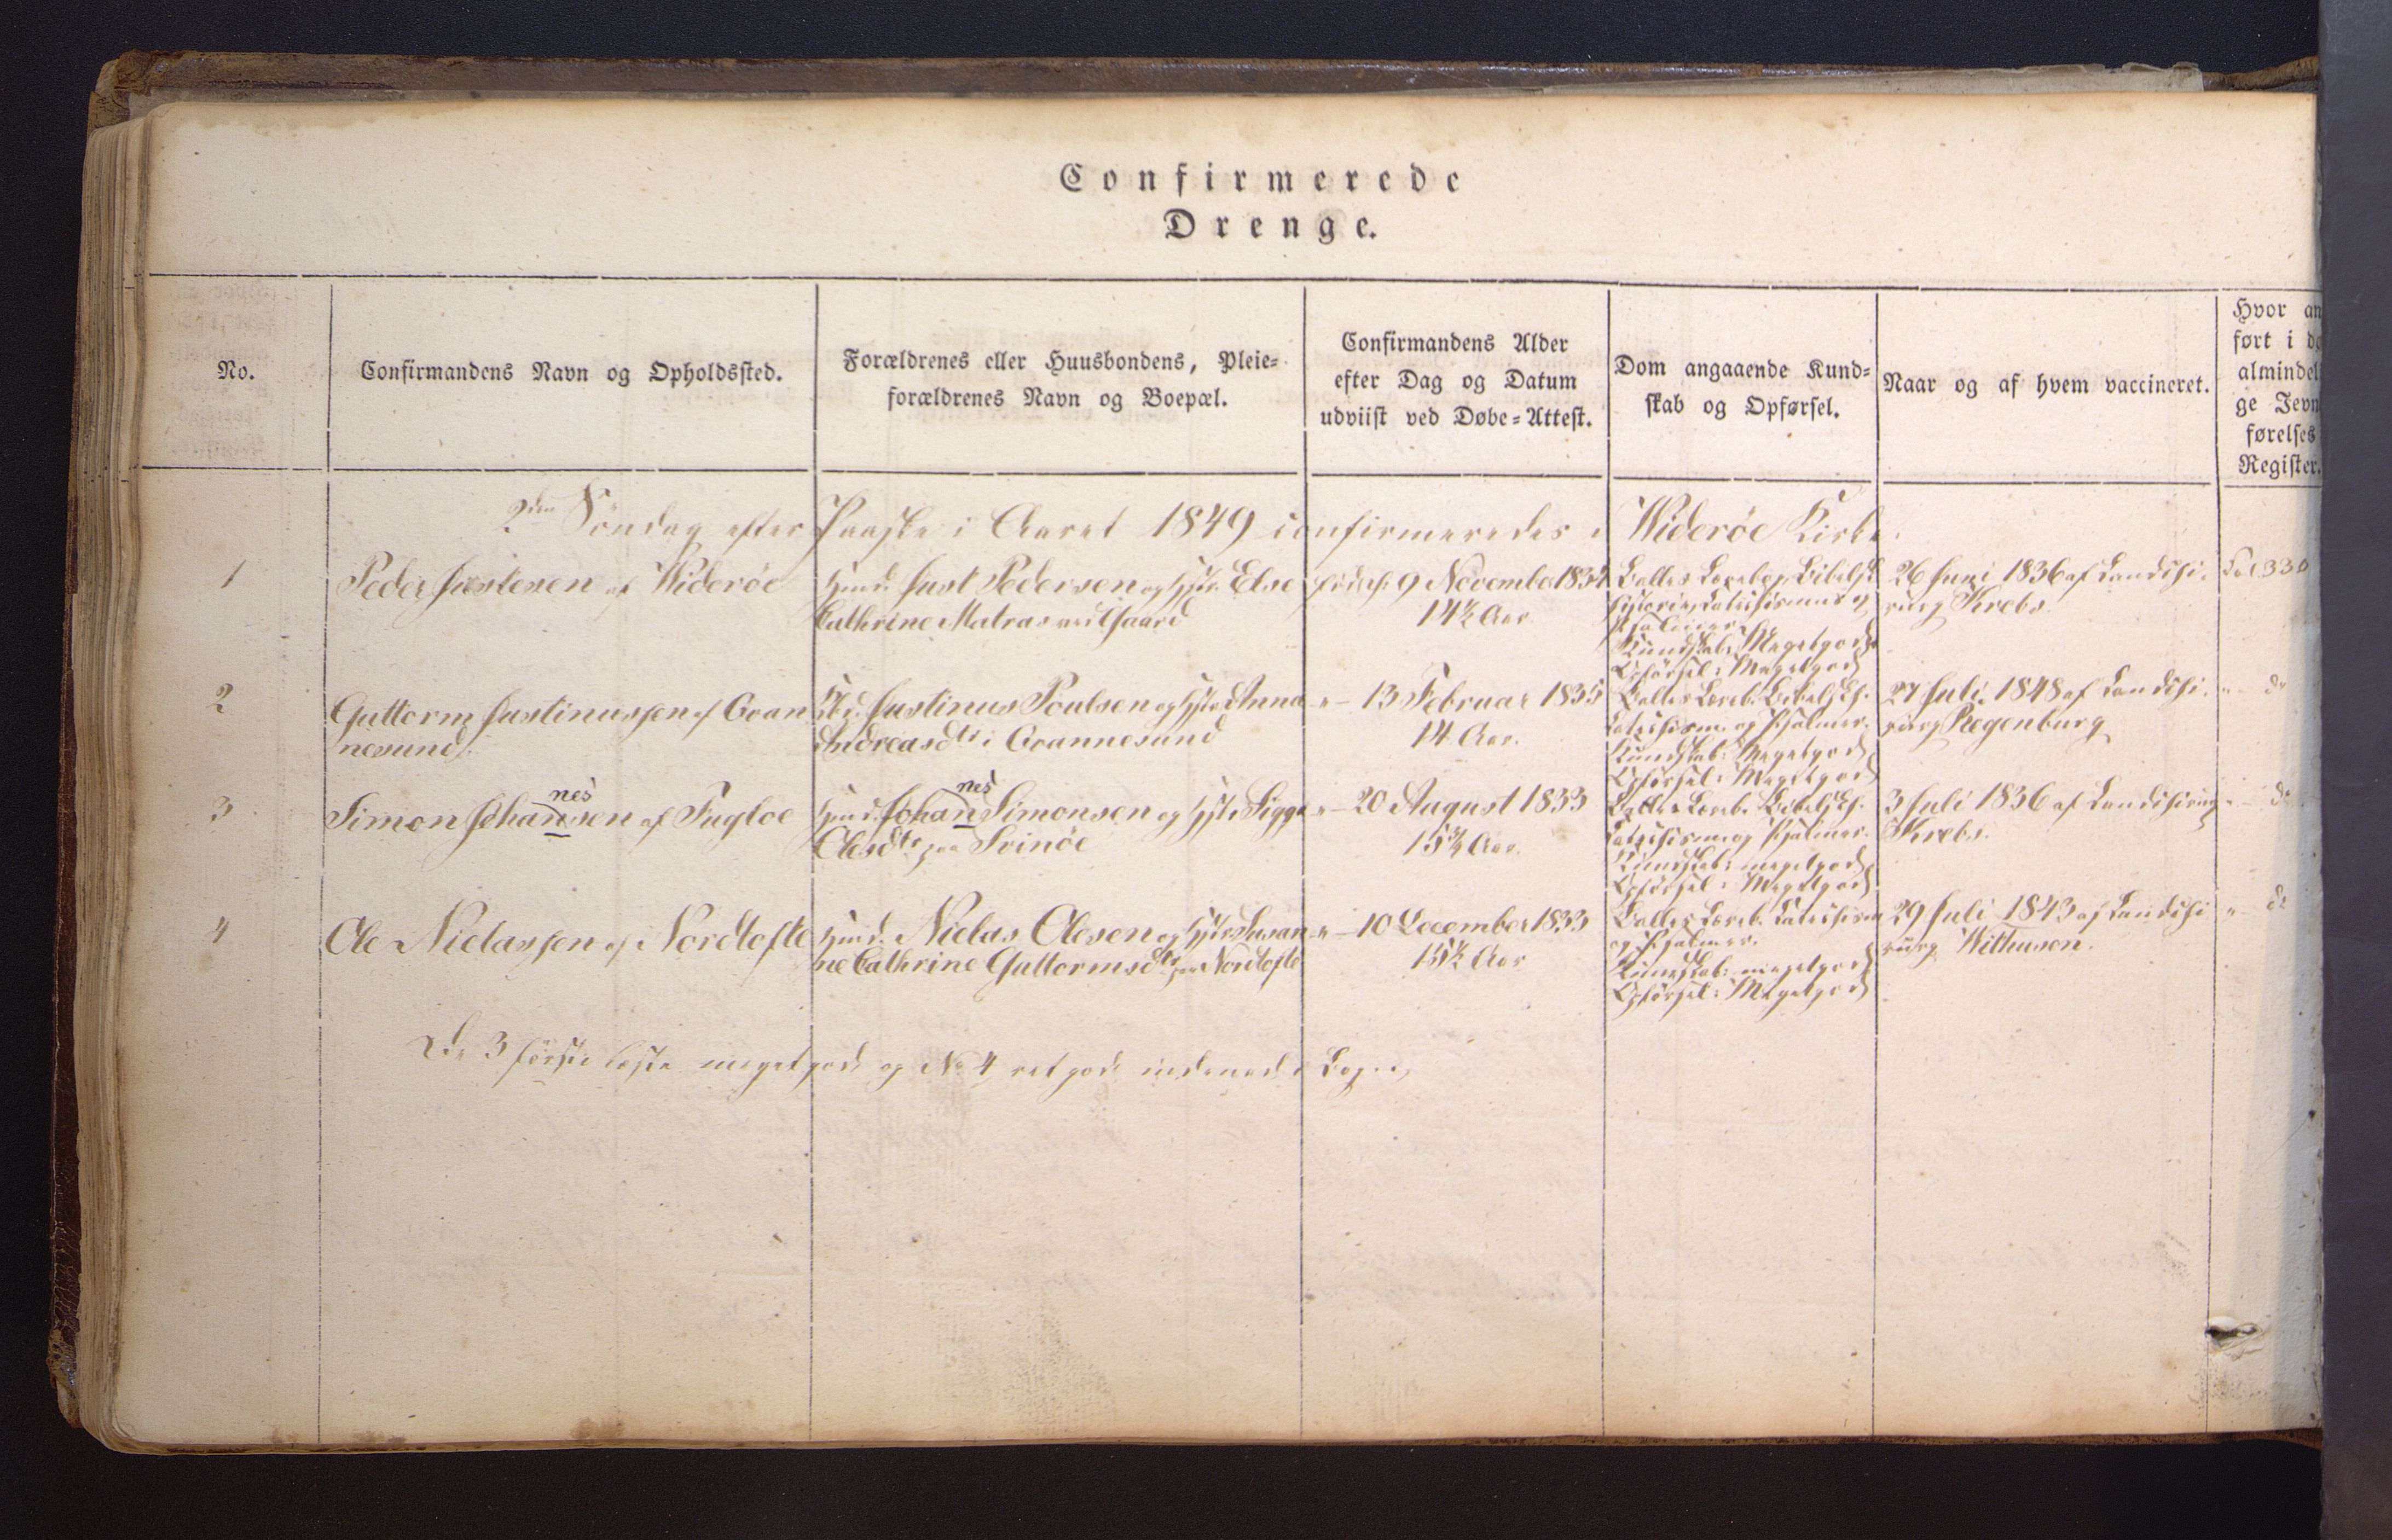 Confirmerede
Drenge.
No.
Confirmandens Navn og Opholdssted.
Forældrenes eller Huusbondens, Pleie-
forældrenes Navn og Boepæl.
Confirmandens Alder
efter Dag og Datum
udviist ved Døbe-Attest.
Dom angaaende Kund-
skab og Opførsel.
Naar og af hvem vaccineret.
Hvor an
ført i de
almindel
ge Jevn
førelses
Register.
2den Söndag efter Paaske i Aaret 1849 confirmeredes i Widerøe Kirke.
1
Peder Justesen af Widerøe
Just Pedersen og Else
Cathrine Matras
9 November 1834
14½ Aar
Balles Lærebog, Bibelsk
Historie, Katechismus og
Psalmer.
Kundskab: Megetgod
Opförsel: Megetgod
26 Juni 1836 af Landchi-
rurg Krebs.
Fol 330
2
Guttorm Justinussen af Qvan
nesund
Justinus Poulsen og Anna
Andreasdtr i Qvannesund
" - 13 Februar 1835
14 Aar.
Balles Læreb. Bibelsk H.
Katechism. og Psalmer.
Kundskab: Megetgod
Opförsel: Megetgod
27 Juli 1848 af Landchi-
rurg Regenburg
" - do
3
nes
Simon Johansen af Fugloe
nes
Johan Simonsen og Sigga
Olesdtr paa Svinöe
" - 20 August 1833
15¾ Aar.
Balles Læreb. Bibelsk H.
Katechism. og Psalmer.
Kundskab: megetgod
Opförsel: Megetgod
3 Juli 1836 af Landchirurg
Krebs.
" - do
4
Ole Nielassen af Nordtofte
Nielas Olesen og Susan
ne Cathrine Guttormsdtr paa Nordtofte
" - 10 December 1833
15½ Aar
Balles Læreb. Katechism
og Psalmer.
Kundskab: megetgod
Opförsel: Megetgod
29 Juli 1843 af Landchi
rurg Withusen.
" do
De 3 förste læste megetgodt og No 4 ret godt indenad i Bog.